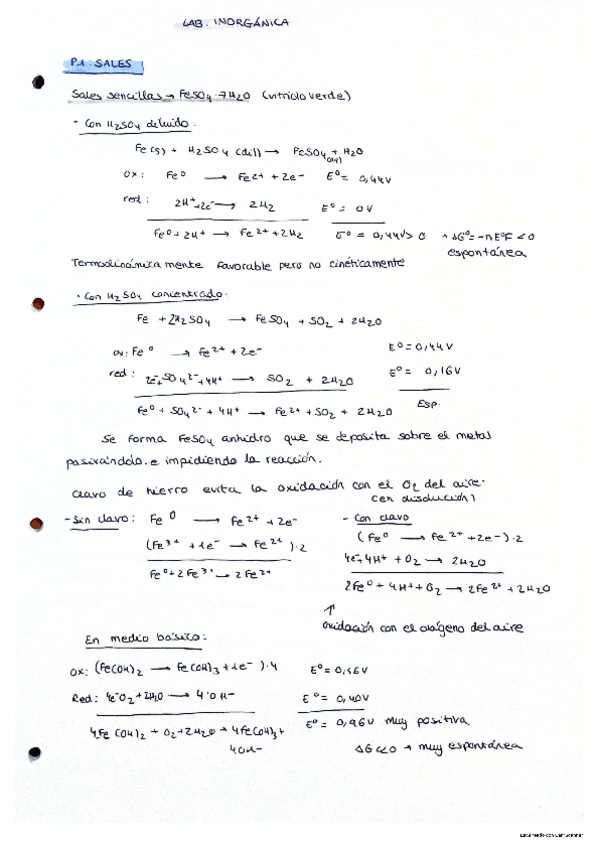 LAB. INORGÁNICA
P.1. SALES
Sales sencillas → FeSO4·7H2O (vitriolo verde)
- Con H2SO4 diluido:
Fe(s) + H2SO4 (dil) → FeSO4 (aq) + H2O
ox: Fe⁰ → Fe2+ + 2e- E⁰= 0,44V
red: 2H+ +2e- → 2H2 E⁰= 0V
Fe⁰+2H+ → Fe2+ +2H2 E⁰ = 0,44V> 0 → ΔG⁰=-nE⁰F <0
espontánea
Termodinámicamente favorable pero no cinéticamente
· Con H2SO4 concentrado:
Fe + 2H2SO4 → FeSO4 + SO2 + 2H2O
ox: Fe⁰ → Fe2+ + 2e- E⁰=0,44V
red: 2e-+SO4 2- +4H+ → SO2 + 2H2O E⁰= 0,16V
Fe⁰ + SO4 2- + 4H+ → Fe2+ + SO2 + 2H2O Esp.
Se forma FeSO4 anhidro que se deposita sobre el metal
pasivándolo e impidiendo la reacción.
Clavo de hierro evita la oxidación con el O2 del aire.
(en disolución)
- Sin clavo: Fe⁰ → Fe2+ + 2e-
(Fe3+ + 1e- → Fe2+)·2
Fe⁰+2Fe3+ → 2Fe2+
- Con clavo
(Fe⁰ → Fe2+ +2e-)·2
4e-+4H+ + O2 → 2H2O
2Fe⁰ + 4H+ +O2 → 2Fe2+ + 2H2O
↑
oxidación con el oxígeno del aire
En medio básico:
Ox: (Fe(OH)2 → Fe(OH)3 +1e-)·4 E⁰= 0,56V
Red: 4e-O2+2H2O → 4OH- E⁰= 0,40V
4Fe(OH)2 + O2+2H2O → 4Fe(OH)3+ E⁰= 0,96V muy positiva
4OH- ΔG<<0 → muy espontánea
Escaneado con CamScanner